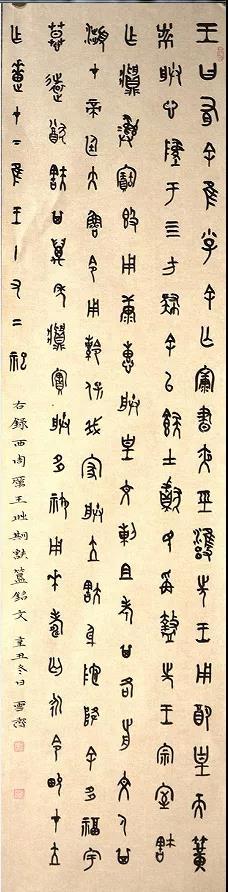 王曰有余隹小子余亡康晝夜巠雝先王用配皇天簧
黹朕心墜于四方肆余以餕士獻民爯盩先王宗室㝬
乍𩰬彝寶簋用康惠朕皇文剌且考其各前文人其
瀕才帝廷大魯令用保我家朕立㝬身阤降余多福宇
慕遠猷㝬其萬年𩰬實朕多禦用壽匄永令畯才立
乍疐才下隹王十又二祀
右錄西周厲王時期㝬簋銘文 辛丑冬日 雪